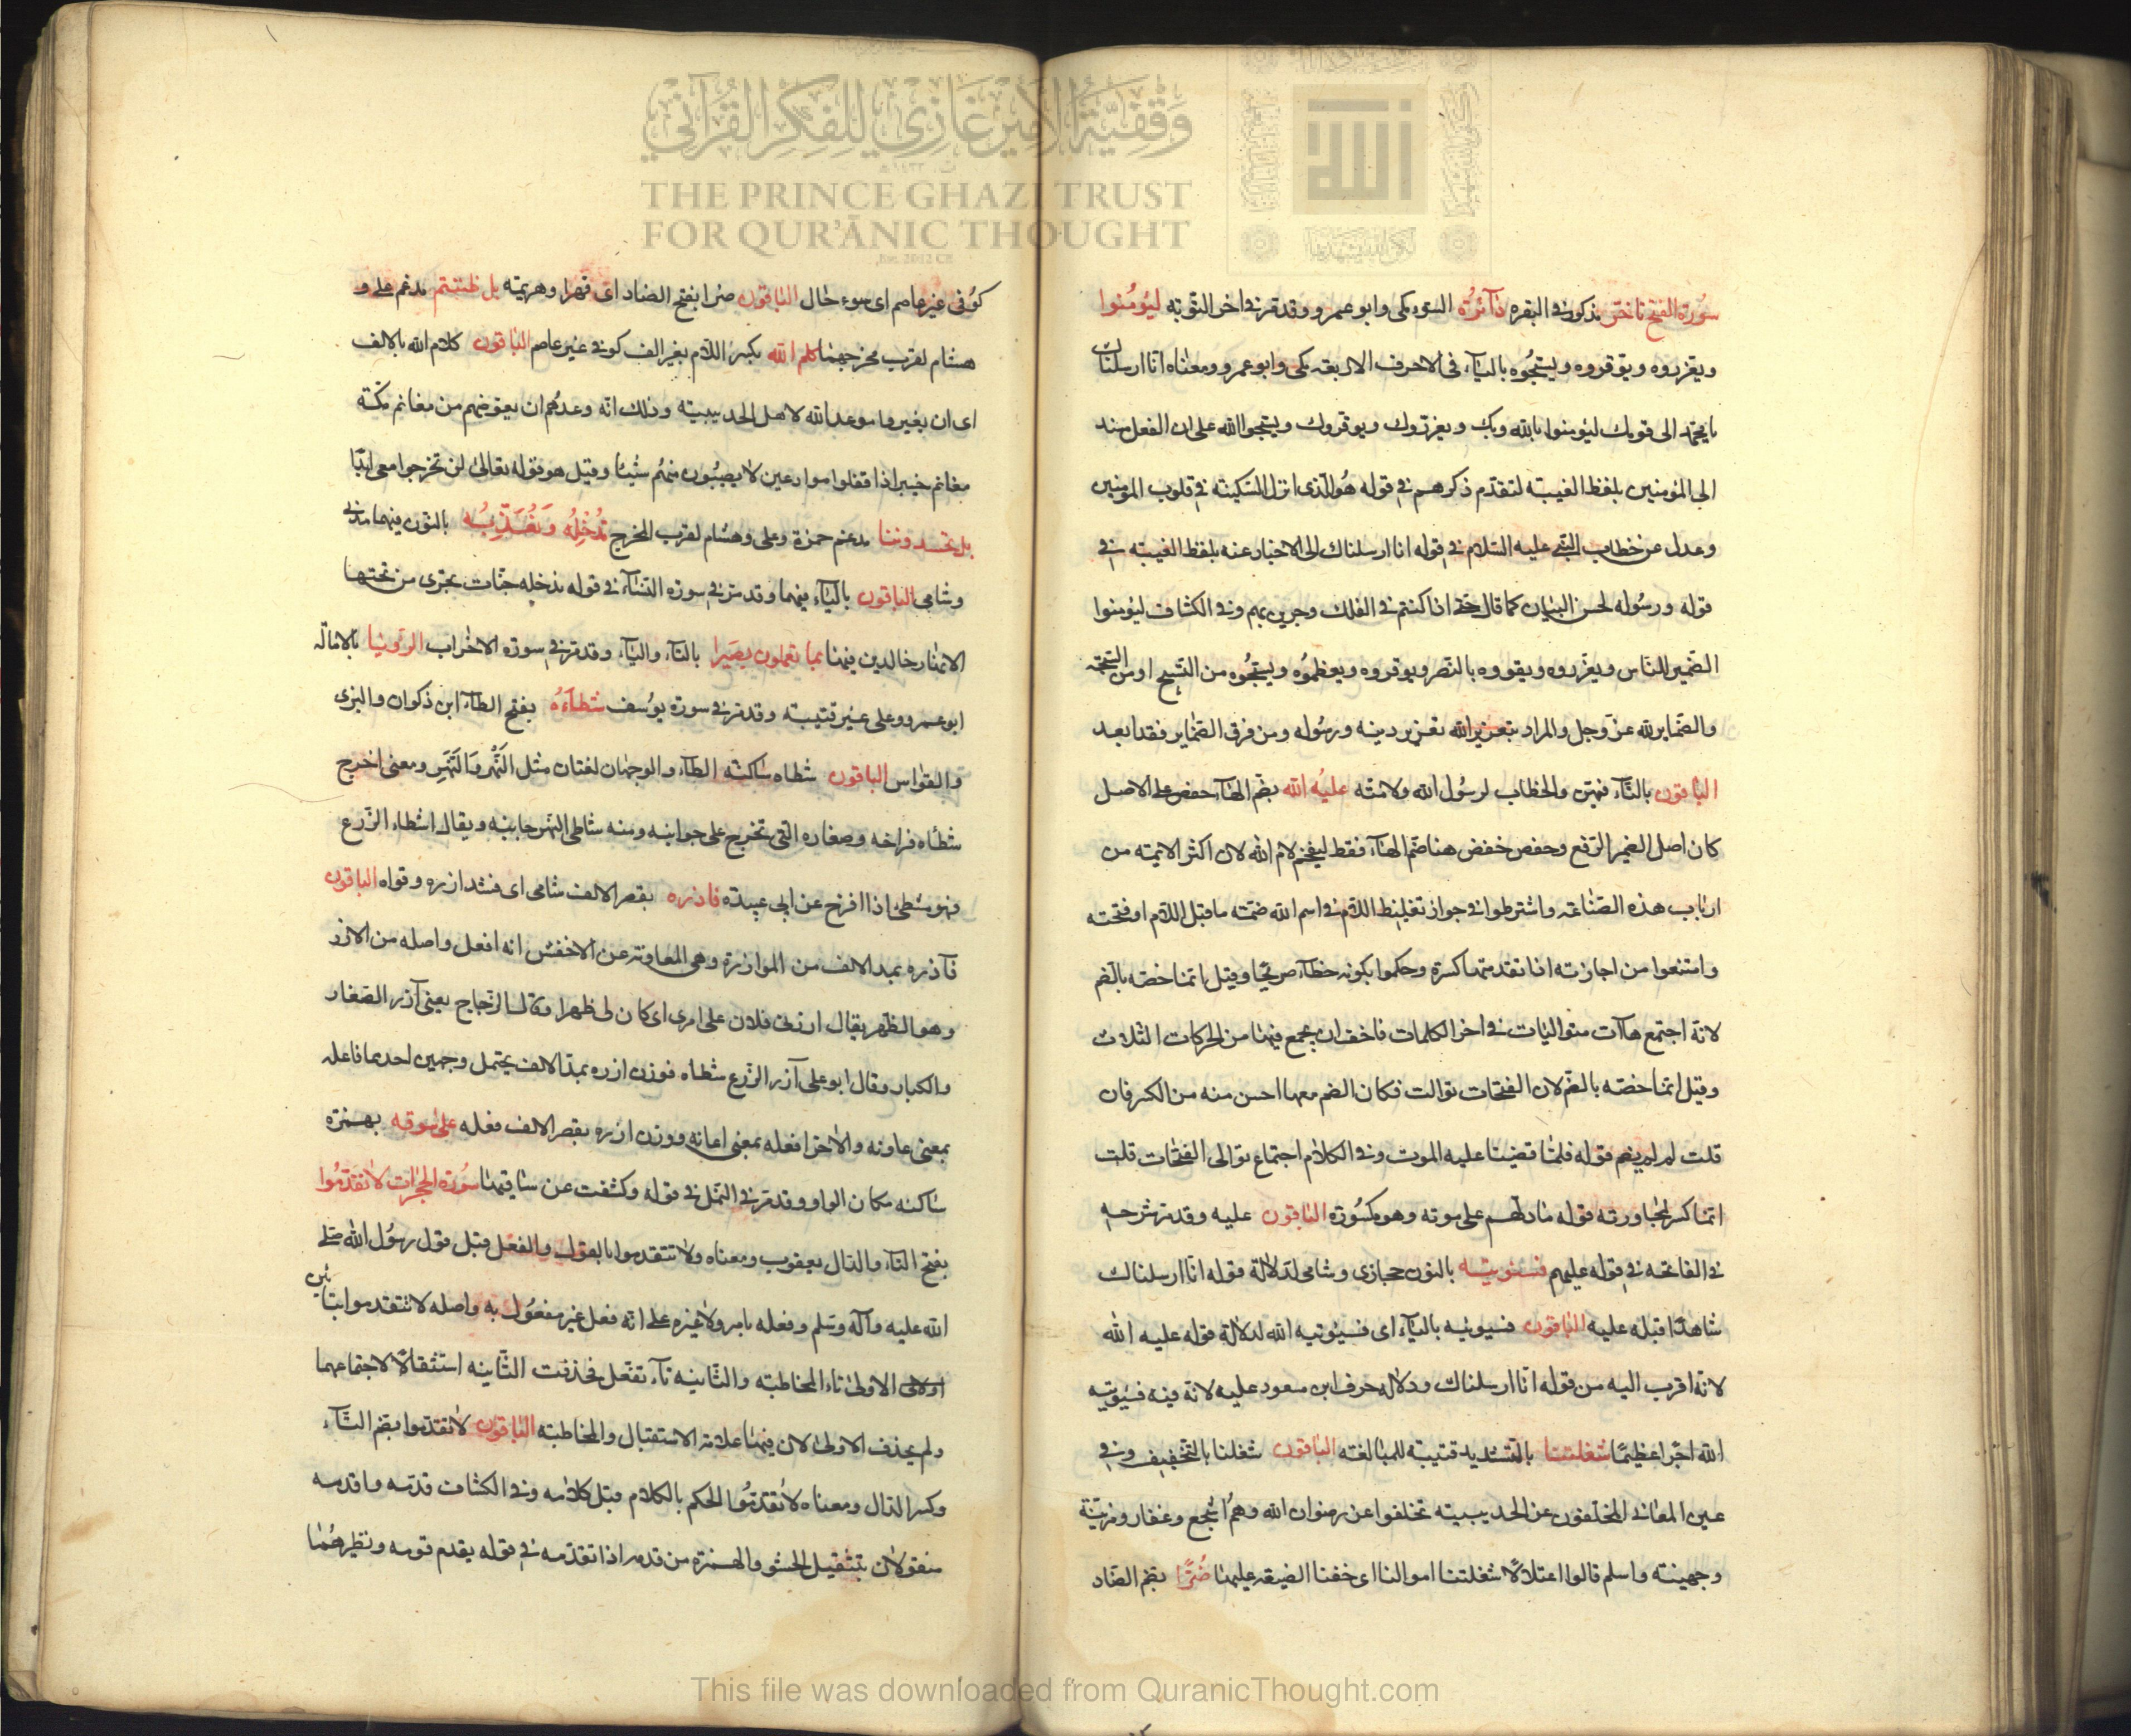 وقفية الأمير غازي للفكر القرآني
THE PRINCE GHAZI TRUST
FOR QUR'ĀNIC THOUGHT
سورة الفتح تاخر مذكور في البقره دآئرة السوء مكى وابو عمرو وقد مر في اخر التوبه ليؤمنوا
ويعزروه ويوقروه ويسبحوه بالياء في الاحرف الاربعه مكى وابو عمرو ومعناه انا ارسلناك
يا محمد الى قومك ليؤمنوا بالله وبك ويعزروك ويوقروك ويسبحوا الله على ان الفعل مسند
الى المؤمنين بلفظ الغيبة لتقدم ذكرهم في قوله هو الذى انزل السكينة في قلوب المؤمنين
وعدل عن خطاب النبي عليه السلام في قوله انا ارسلناك الى الاخبار عنه بلفظ الغيبه في
قوله ورسوله لحسن البيان كما قال حتى اذا كنتم في الفلك وجرين بهم وفي الكشاف ليؤمنوا
الضمير للناس ويعزروه ويقووه بالنصر ويوقروه ويعظموه ويسبحوه من التسبيح او من السبحة
والضماير لله عز وجل والمراد بتعزير الله تعزير دينه ورسوله ومن فرق الضماير فقد ابعد
الباقون بالتاء فيهن والخطاب لرسول الله ولامته عليه الله بضم الهاء حفص على الاصل
كان اصل الضمير الرفع وحفص خفض هنا ضم الهاء فقط ليفخم لام الله لان اكثر الائمة من
ارباب هذه الصناعة واشترطوا في جواز تغليظ اللام في اسم الله ضمة ما قبل اللام او فتحته
وامتنعوا من اجازته اذا تقدمتها كسرة وحكموا بكونه خطآء صريحا وقيل انما خصه بالضم
لانه اجتمع هاآت متواليات في اخر الكلمات فاخف ان يجمع فيها من الحركات الثلاث
وقيل انما خصه بالضم لان الفتحات توالت فكان الضم معها احسن منه من الكسر فان
قلت لم لم يضم قوله فلما قضينا عليه الموت وفي الكلام اجتماع توالى الفتحات قلت
انما كسر لمجاورته قوله ما دلهم على موته وهو مكسورة الباقون عليه وقد مر شرحه
في الفاتحه في قوله عليهم فسنوتيه بالنون حجازى وشامى لدلالة قوله انا ارسلناك
شاهدا قبله عليه الباقون فسيوتيه بالياء اى فسيؤتيه الله لدلالة قوله عليه الله
لانه اقرب اليه من قوله انا ارسلناك ودلاله حرف ابن مسعود عليه لانه فيه فسيوتيه
الله اجرا عظيما شغلتنا بالتشديد قتيبة للمبالغه الباقون شغلنا بالتخفيف وفي
عين المعاني المخلفون عن الحديبية تخلفوا عن رضوان الله وهم اشجع وغفار ومزينة
وجهينه واسلم قالوا اعتلالا شغلتنا اموالنا اى خفنا الضيقه عليها ضرا بضم الضاد
كوفى غير عاصم اى سوء حال الباقون ضرا بفتح الضاد اى قهرا وهزيمة بل ظننتم مدغم على و
هشام لقرب مخرجهما كلم الله بكسر اللام بغير الف كوفي غير عاصم الباقون كلام الله بالالف
اى ان يغيروا موعد الله لاهل الحديبية وذلك انه وعدهم ان يعوضهم من مغانم مكة
مغانم خيبر اذا قفلوا موادعين لا يصيبون منهم شيئا وقيل هو قوله تعالى لن تخرجوا معى ابدا
بل تحسدوننا مدغم حمزة وعلى وهشام لقرب المخرج ندخله ونعذبه بالنون فيهما مدنى
وشامى الباقون بالياء فيهما وقد مر في سورة النساء في قوله ندخله جنات تجرى من تحتها
الانهار خالدين فيها بما تعملون بصيرا بالتاء والياء وقد مر في سورة الاحزاب الرؤيا بالامالة
ابو عمرو وعلى غير قتيبة وقد مر في سورة يوسف شطأه بفتح الطاء ابن ذكوان والبزى
والقواس الباقون شطاه ساكنة الطاء والوجهان لغتان مثل النهر والنهر ومعنى اخرج
شطأه فراخه وصغاره التى تخرج على جوانبه ومنه شاطى النهر جانبه ويقال اشطاء الزرع
فهو مشطئ اذا افرخ عن ابى عبيدة فازره بقصر الالف شامى اى فشد ازره وقواه الباقون
فآزره بمد الالف من الموازرة وهى المعاونة عن الاخفش انه افعل واصله من الازر
وهو الظهر يقال ازرنى فلان على امرى اى كان لى ظهرا وقال الزجاج يعنى آزر الصغار
والكبار وقال ابو على آزر الزرع شطاه فوزن ازره بمد الالف يحتمل وجهين احدهما فاعله
بمعنى عاونه والاخر افعله بمعنى اعانه ووزن ازره بقصر الالف فعله على سوقه بهمزة
ساكنه مكان الواو وقد مر في النمل في قوله وكشفت عن ساقيها سورة الحجرات لا تقدموا
بفتح التاء والدال يعقوب ومعناه ولا تتقدموا بالقول والفعل قبل قول رسول الله صلى
الله عليه وآله وسلم وفعله بامر ولا غيره على انه فعل غير مفعول به واصله لا تتقدموا بتائين
الاولى تاء المخاطبة والثانيه تآء تفعل فحذفت الثانيه استثقالا لاجتماعهما
ولم يحذف الاولى لان فيها علامة الاستقبال والمخاطبة الباقون لا تقدموا بضم التآء
وكسر الدال ومعناه لا تقدموا الحكم بالكلام قبل كلامه وفي الكشاف قدمه واقدمه
منقولان بتثقيل الحشو والهمزة من قدمه اذا تقدمه في قوله يقدم قومه ونظيرهما
This file was downloaded from QuranicThought.com